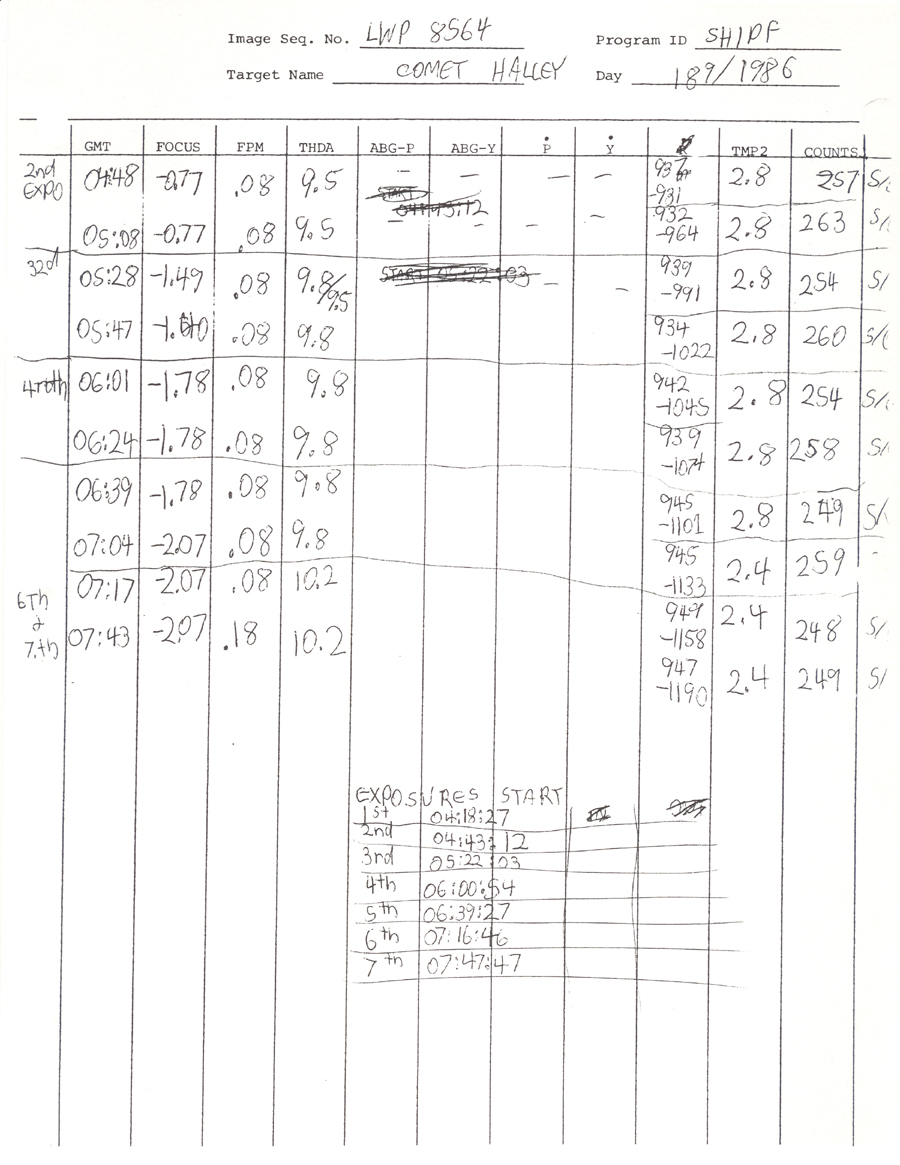 Image Seq. No. LWP 8564 Program ID SHIPF
Target Name COMET HALLEY Day 189/1986
GMT FOCUS FPM THDA ABG-P ABG-Y P Y TMP2 COUNTS
2nd EXPO 04:48 -0.77 .08 9.5 - - - - 937 -931 2.8 257 S/
START 04:43:12
05:08 -0.77 .08 9.5 - - - 932 -964 2.8 263 S/
32d 05:28 -1.49 .08 9.8/9.5 START 05:22:03 - - 939 -991 2.8 254 S/
05:47 .08 9.8 934 -1022 2.8 260 S/
06:01 -1.78 .08 9.8 942 -1045 2.8 254 S/
06:24 -1.78 .08 9.8 939 -1074 2.8 258 S/
06:39 -1.78 .08 9.8 945 -1101 2.8 249 S/
07:04 -2.07 .08 9.8 945 -1133 2.4 259 -
6Th & 7.th 07:17 -2.07 .08 10.2 949 -1158 2.4 248 S/
07:43 -2.07 .18 10.2 947 -1190 2.4 249 S/
EXPOSURES START
1st 04:18:27
2nd 04:43:12
3rd 05:22:03
4th 06:00:54
5th 06:39:27
6th 07:16:46
7th 07:47:47